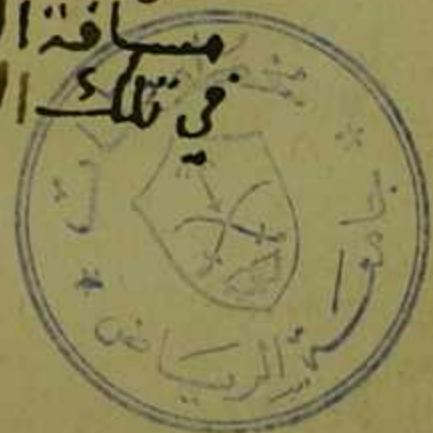 مسافة ا
في تلك ا
جامعة الرياض